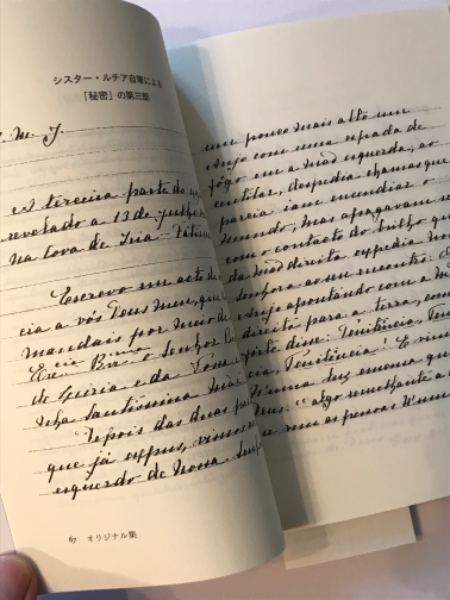 シスター・ルチア自筆による
「秘密」の第三部
J. M. J.
A terceira parte do
revelado a 13 de julho
na Cova de Iria-Fátima
Escrevo em acto de
cia a vós Deus meu, que
mandais por meio de
Ex.cia Rev.ma o Senhor B
de Leiria e da Vossa
nha Santíssima Mãe
Depois das duas par
que já expus, vimos
esquerdo de Nossa Senh
67 オリジナル集
um pouco mais alto um
Anjo com uma espada de
fôgo em a mão esquerda; ao
centilar, despedia chamas que
parecia iam encendiar o
mundo; mas apagavam-se
com o contacto do brilho que
da mão direita expedia Nossa
Senhora ao seu encontro: O
Anjo apontando com a mão
direita para a terra, com
forte disse: Penitência, Peni
cia, Penitência! E vimos
n'uma luz emensa que
Deus: "algo semelhante a
vem as pessoas n'um